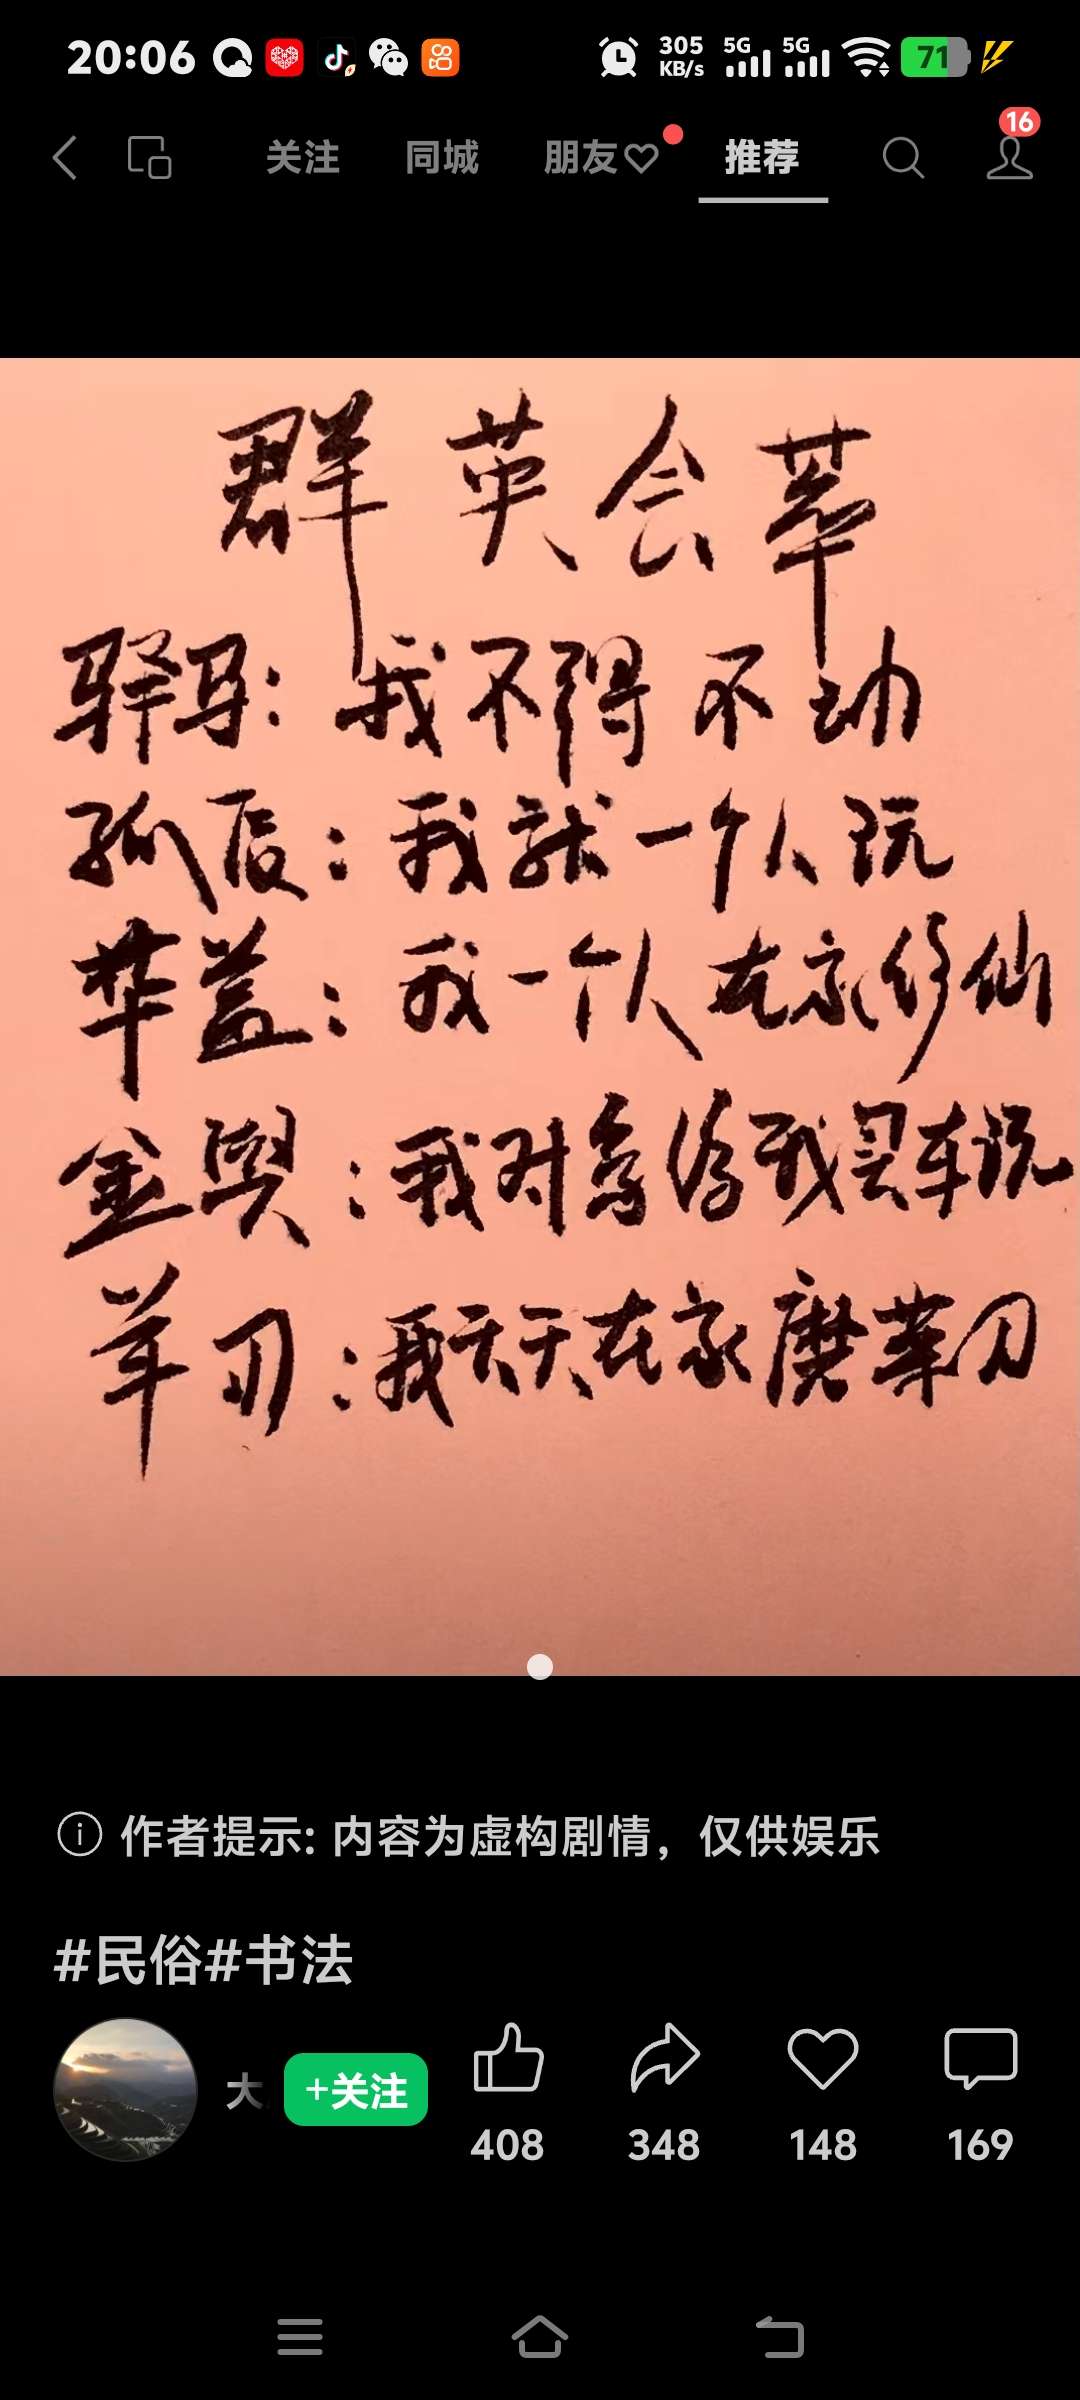 20:06
305 KB/s 5G 5G 71
关注 同城 朋友 推荐 16
群英会萃
驿马：我不得不动
孤辰：我就一个人玩
华盖：我一个人在家修仙
金舆：我对象给我买车说
羊刃：我天天在家磨菜刀
作者提示: 内容为虚构剧情，仅供娱乐
#民俗#书法
大 +关注
408 348 148 169